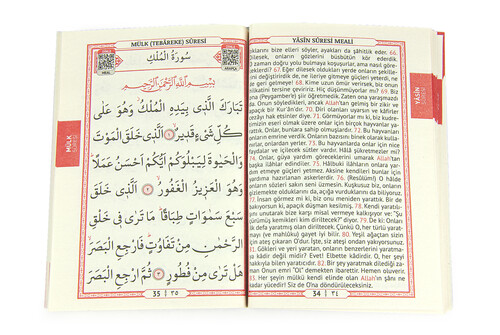 MÜLK (TEBÂREKE) SÛRESİ
سُورَةُ الْمُلْكِ
بِسْمِ اللّٰهِ الرَّحْمٰنِ الرَّحِيمِ
تَبَارَكَ الَّذِى بِيَدِهِ الْمُلْكُ وَهُوَ عَلٰى
كُلِّ شَىْءٍ قَدِيرٌ ۞ اَلَّذِى خَلَقَ الْمَوْتَ
وَالْحَيٰوةَ لِيَبْلُوَكُمْ اَيُّكُمْ اَحْسَنُ عَمَلًا
وَهُوَ الْعَزِيزُ الْغَفُورُ ۞ اَلَّذِى خَلَقَ
سَبْعَ سَمٰوَاتٍ طِبَاقًا مَا تَرٰى فِى خَلْقِ
الرَّحْمٰنِ مِنْ تَفَاوُتٍ فَارْجِعِ الْبَصَرَ
هَلْ تَرٰى مِنْ فُطُورٍ ۞ ثُمَّ ارْجِعِ الْبَصَرَ
35 | ٣٥
MÜLK
SÛRESİ
YÂSÎN SÛRESİ MEALİ
ıklarını bize elleri söyler, ayakları da şâhitsik eder. 66.
O zaman doğru yolu bulmaya koşuşurlar, ama nasıl göre-
67. Eğer dilesek oldukları yerde onların şekille-
rini değiştirirdik de, ne ileriye gitmeye güçleri yeterdi, ne
geri gelmeye! 68. Kime uzun ömür verirsek, biz onun
tersine çeviririz. Hiç düşünmüyorlar mı? 69. Biz
(Peygamber'e) şiir öğretmedik. Zaten ona yaraşmazdı
Onun söyledikleri, ancak Allah'tan gelmiş bir zikir ve
apaçık bir Kur'ân'dır. 70. Diri olanları uyarsın ve kâfirler
azabı hak etsinler diye. 71. Görmüyorlar mı ki, biz kudre-
eseri olmak üzere onlar için birçok hayvanlar ya-
Onlar, bunlara sahip olmuşlardır. 72. Bu hayvanları
onların emrine verdik. Onlardan bir kısmı binekleridir, bir
yerler. 73. Bu hayvanlarda onlar için nice
faydalar ve içilecek sütler vardır. Hâlâ şükretmezler mi?
74. Onlar, güya yardım göreceklerini umarak Allah'tan
başka ilâhlar edindiler. 75. Hâlbuki ilâhların onlara yar-
etmeye güçleri yetmez. Aksine kendileri bunlar için
yardıma hazırlanan askerlerdir. 76. (Resûlüm!) O hâlde
onların sözleri sakın seni üzmesin. Kuşkusuz biz, onların
gizlemekte olduklarını da, açığa vurduklarını da biliyoruz.
77. İnsan görmez mi ki, biz onu meniden yarattık. Bir de
bakıyorsun ki, apaçık düşman kesilmiş. 78. Kendi yaratılı-
unutarak bize karşı misal vermeye kalkışıyor ve: "Şu
çürümüş kemikleri kim diriltecek?" diyor. 79. De ki: Onları
defa yaratmış olan diriltecek. Çünkü O, her türlü yarat-
mayı gayet iyi bilir. 80. Yeşil ağaçtan sizin
için ateş çıkaran O'dur. İşte, siz ateşi ondan yakıyorsunuz.
81. Gökleri ve yeri yaratan, onların benzerlerini yaratmaya
kâdir değil midir? Evet! Elbette kâdirdir. O, her şeyi
hakkıyla bilen yaratıcıdır. 82. Bir şey yaratmak istediği za-
man Onun emri "Ol" demekten ibarettir. Hemen oluverir.
83. Her şeyin mülkü kendi elinde olan Allah'ın şânı ne
kadar yücedir! Siz de O'na döndürüleceksiniz.
34 | ٣٤
YÂSÎN
SÛRESİ